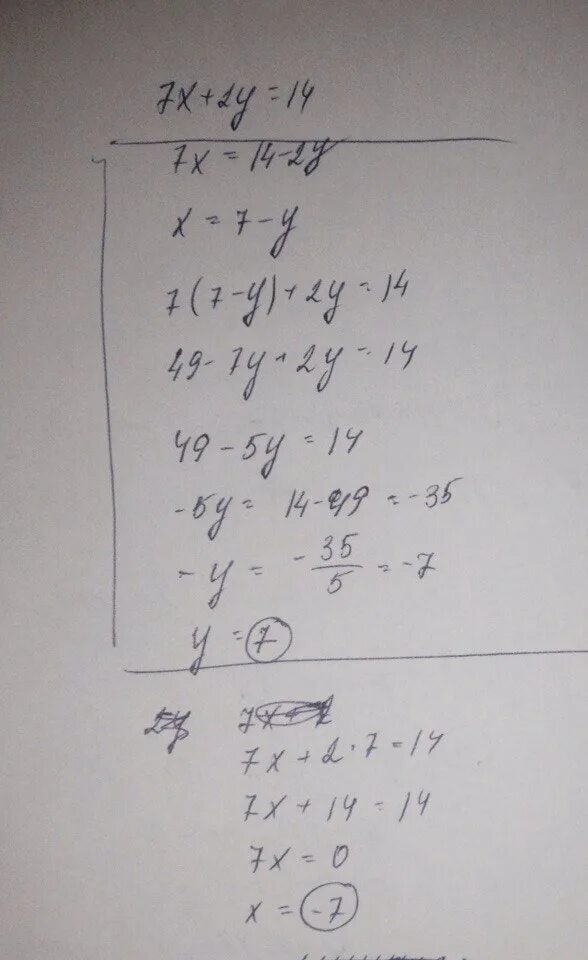 7x+2y=14
7x = 14-2y
x = 7-y
7(7-y)+2y=14
49-7y+2y=14
49-5y=14
-5y= 14-49=-35
-y = -35/5=-7
y=7
7x+2·7=14
7x+14=14
7x=0
x=-7